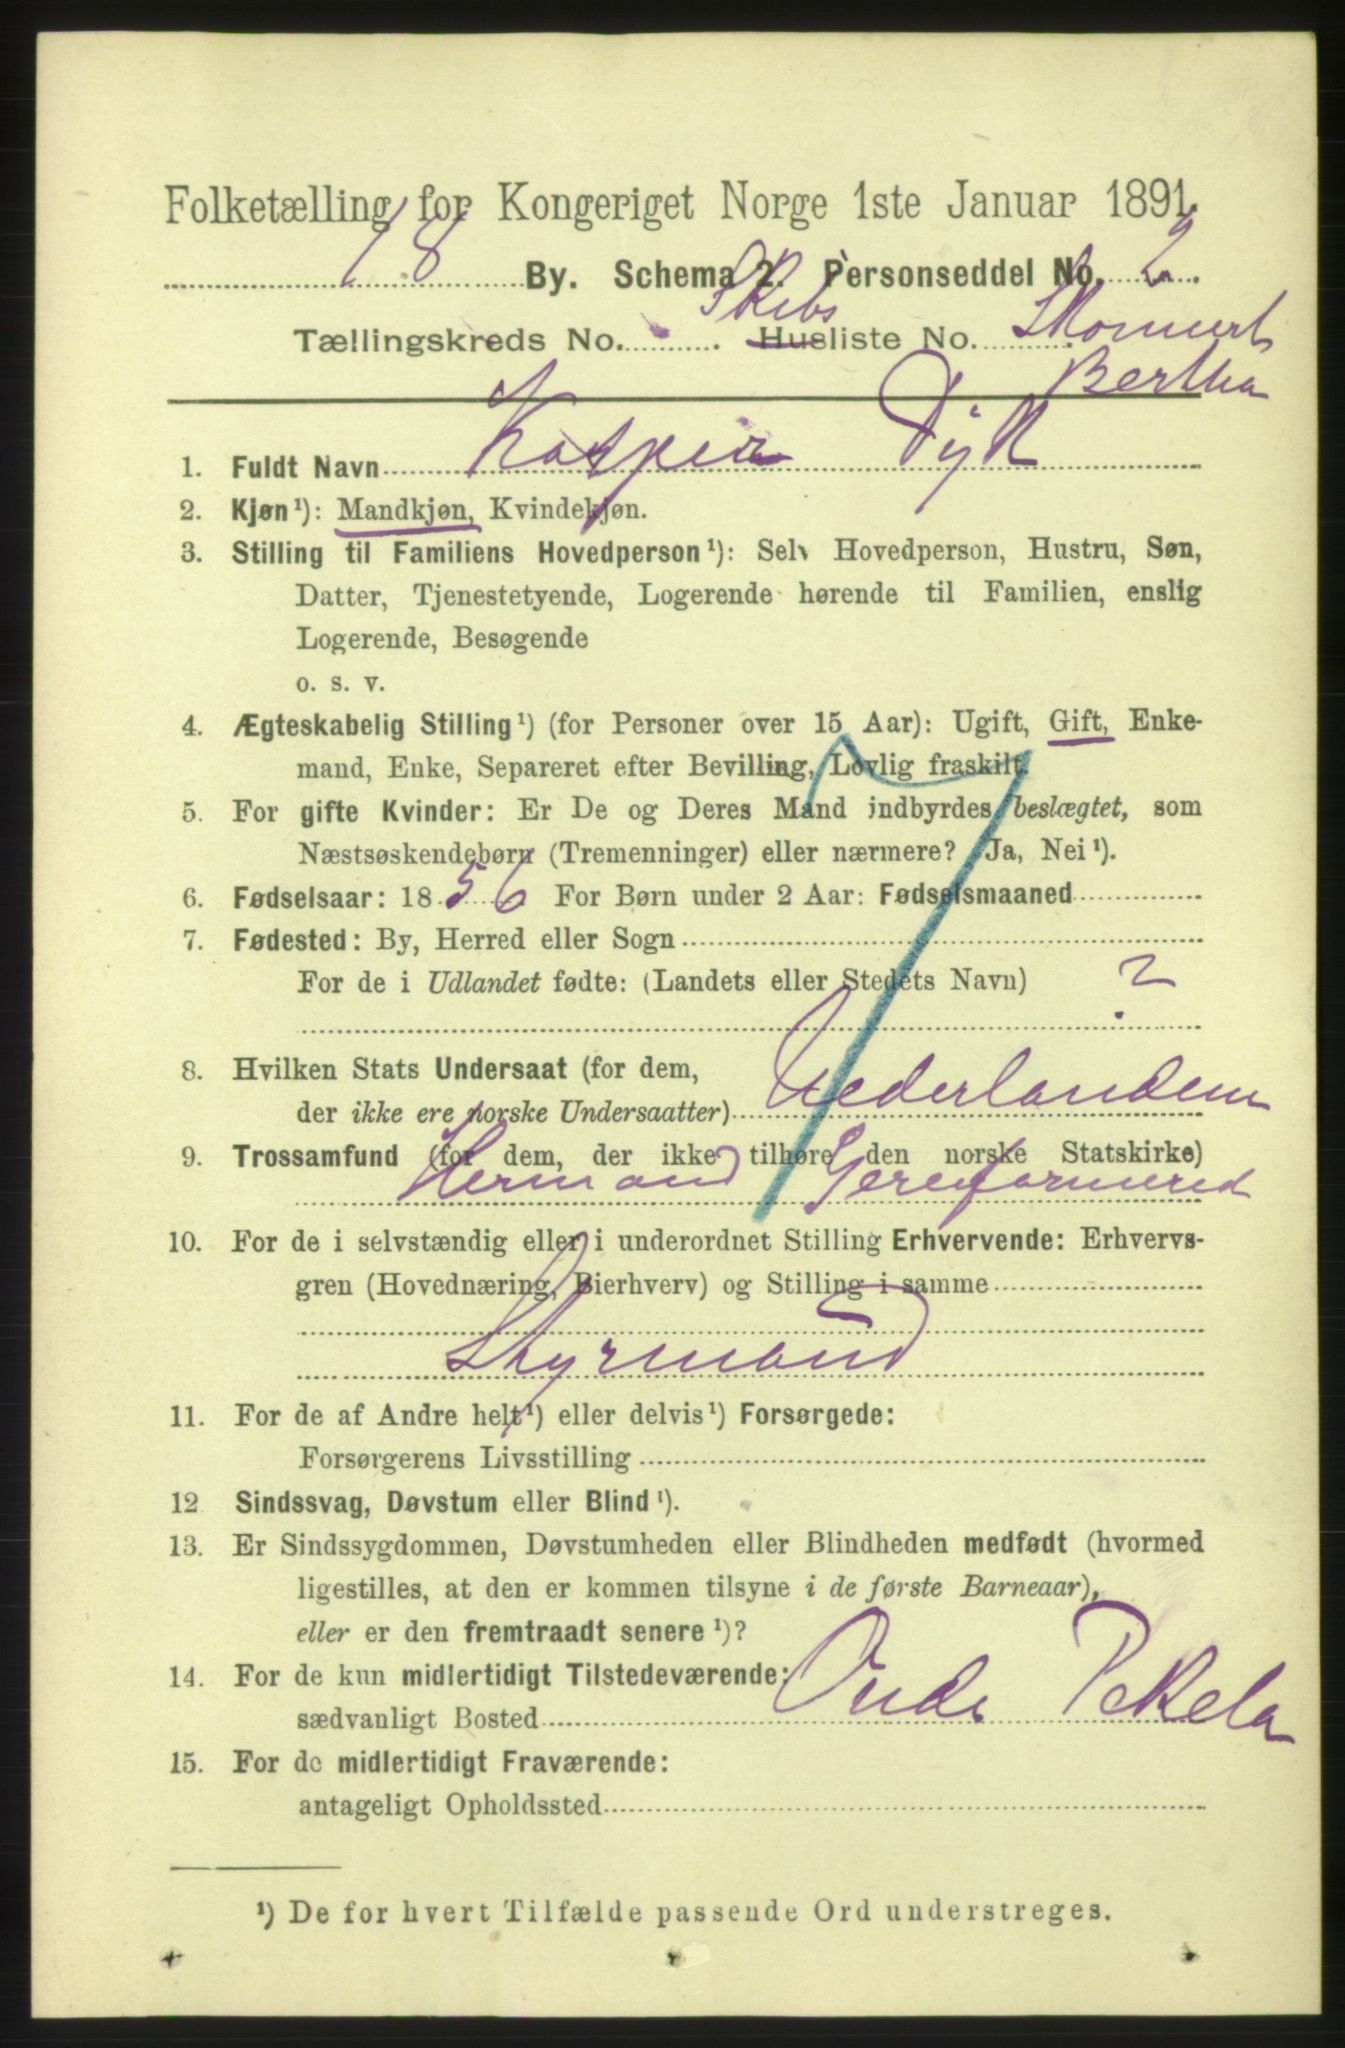 Folketælling for Kongeriget Norge 1ste Januar 1891.
18 By. Schema 2. Personseddel No. 2.
Tællingskreds No. . Skibs Husliste No. .
Bertha
1. Fuldt Navn Kasper Dyk
2. Kjøn¹): Mandkjøn, Kvindekjøn.
3. Stilling til Familiens Hovedperson¹): Selv Hovedperson, Hustru, Søn,
Datter, Tjenestetyende, Logerende hørende til Familien, enslig
Logerende, Besøgende
o. s. v.
4. Ægteskabelig Stilling¹) (for Personer over 15 Aar): Ugift, Gift, Enke-
mand, Enke, Separeret efter Bevilling, Lovlig fraskilt.
5. For gifte Kvinder: Er De og Deres Mand indbyrdes beslægtet, som
Næstsøskendebørn (Tremenninger) eller nærmere? Ja, Nei¹).
6. Fødselsaar: 1856 For Børn under 2 Aar: Fødselsmaaned
7. Fødested: By, Herred eller Sogn
For de i Udlandet fødte: (Landets eller Stedets Navn) ?
8. Hvilken Stats Undersaat (for dem,
der ikke ere norske Undersaatter) Nederlandene
9. Trossamfund (for dem, der ikke tilhøre den norske Statskirke)
10. For de i selvstændig eller i underordnet Stilling Erhvervende: Erhvervs-
gren (Hovednæring, Bierhverv) og Stilling i samme
Styrmand
11. For de af Andre helt¹) eller delvis¹) Forsørgede:
Forsørgerens Livsstilling
12 Sindssvag, Døvstum eller Blind¹).
13. Er Sindssygdommen, Døvstumheden eller Blindheden medfødt (hvormed
ligestilles, at den er kommen tilsyne i de første Barneaar),
eller er den fremtraadt senere¹)?
14. For de kun midlertidigt Tilstedeværende:
sædvanligt Bosted Oude Pekela
15. For de midlertidigt Fraværende:
antageligt Opholdssted
¹) De for hvert Tilfælde passende Ord understreges.